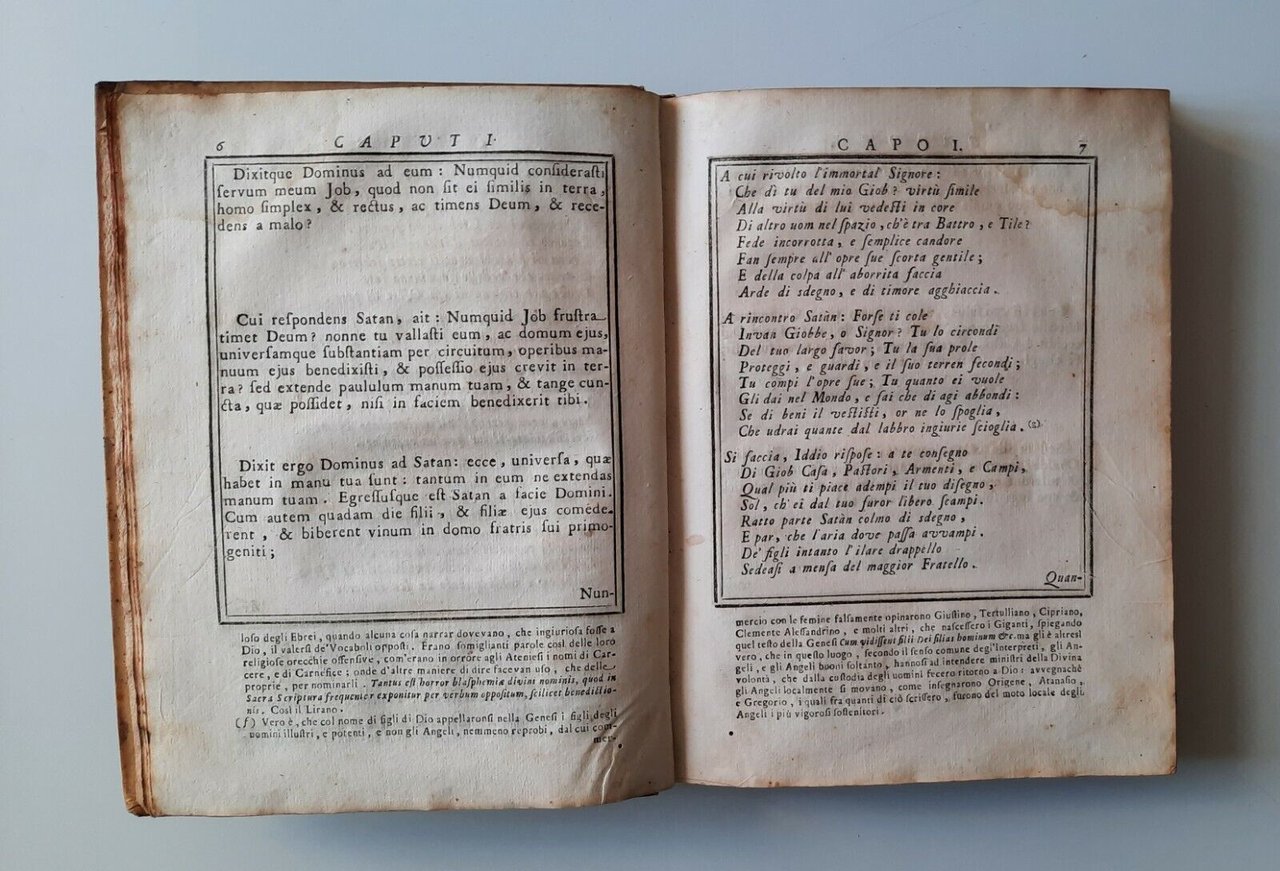 6 CAPUT I.
Dixitque Dominus ad eum : Numquid conſideraſti
ſervum meum Job, quod non ſit ei ſimilis in terra,
homo ſimplex, & rectus, ac timens Deum, & rece-
dens a malo?
Cui reſpondens Satan, ait : Numquid Job fruſtra
timet Deum? nonne tu vallaſti eum, ac domum ejus,
univerſamque ſubſtantiam per circuitum, operibus ma-
nuum ejus benedixiſti, & poſſeſſio ejus crevit in ter-
ra? ſed extende paululum manum tuam, & tange cun-
cta, quæ poſſidet, niſi in faciem benedixerit tibi.
Dixit ergo Dominus ad Satan: ecce, univerſa, quæ
habet in manu tua ſunt : tantum in eum ne extendas
manum tuam. Egreſſuſque eſt Satan a facie Domini.
Cum autem quadam die filii, & filiæ ejus comede-
rent, & biberent vinum in domo fratris ſui primo-
geniti;
Nun-
loſo degli Ebrei, quando alcuna coſa narrar dovevano, che ingiurioſa foſſe a
Dio, il valerſi de'Vocaboli oppoſti. Erano ſomiglianti parole così delle loro
religioſe orecchie offenſive, com'erano in orrore agli Atenieſi i nomi di Car-
cere, e di Carnefice; onde d'altre maniere di dire facevan uſo, che delle
proprie, per nominarli. Tantus eſt horror blaſphemiæ divini nominis, quod in
Sacra Scriptura frequenter exponitur per verbum oppoſitum, ſcilicet benedictio-
nis. Così il Lirano.
(f) Vero è, che col nome di figli di Dio appellaronſi nella Geneſi i figli degli
uomini illuſtri, e potenti, e non gli Angeli, nemmeno reprobi, dal cui com-
mer-
CAPO I. 7
A cui rivolto l'immortal Signore:
Che dì tu del mio Giob? virtù ſimile
Alla virtù di lui vedeſti in core
Di altro uom nel ſpazio, ch'è tra Battro, e Tile?
Fede incorrotta, e ſemplice candore
Fan ſempre all' opre ſue ſcorta gentile;
E della colpa all' aborrita faccia
Arde di sdegno, e di timore agghiaccia.
A rincontro Satàn: Forſe ti cole
Invan Giobbe, o Signor? Tu lo circondi
Del tuo largo favor; Tu la ſua prole
Proteggi, e guardi, e il ſuo terren fecondi;
Tu compi l'opre ſue; Tu quanto ei vuole
Gli dai nel Mondo, e fai che di agi abbondi:
Se di beni il veſtiſti, or ne lo ſpoglia,
Che udrai quante dal labbro ingiurie ſcioglia. (g)
Si faccia, Iddio riſpoſe: a te conſegno
Di Giob Caſa, Paſtori, Armenti, e Campi,
Qual più ti piace adempi il tuo diſegno,
Sol, ch'ei dal tuo furor libero ſcampi.
Ratto parte Satàn colmo di sdegno,
E par, che l'aria dove paſſa avvampi.
De' figli intanto l'ilare drappello
Sedeaſi a menſa del maggior Fratello.
Quan-
mercio con le femine falſamente opinarono Giuſtino, Tertulliano, Cipriano,
Clemente Aleſſandrino, e molti altri, che naſceſſero i Giganti, ſpiegando
quel teſto della Geneſi Cum vidiſſent filii Dei filias hominum &c. ma gli è altresì
vero, che in queſto luogo, ſecondo il ſenſo comune degl'Interpreti, gli An-
geli, e gli Angeli buoni ſoltanto, hannoſi ad intendere miniſtri della Divina
volontà, che dalla cuſtodia degli uomini fecero ritorno a Dio: avvegnachè
gli Angeli localmente ſi movano, come inſegnarono Origene, Atanaſio,
e Gregorio, i quali fra quanti di ciò ſcriſſero, furono del moto locale degli
Angeli i più vigoroſi ſoſtenitori.